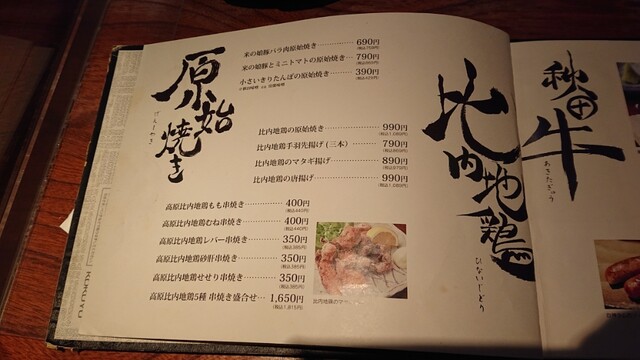 原始焼き
げんしやき
米の娘豚バラ肉原始焼き 690円
(税込759円)
米の娘豚とミニトマトの原始焼き 790円
(税込869円)
小さいきりたんぽの原始焼き 390円
(税込429円)
比内地鶏
ひないじどり
比内地鶏の原始焼き 990円
(税込1,089円)
比内地鶏手羽先揚げ(三本) 790円
(税込869円)
比内地鶏のマタギ揚げ 890円
(税込979円)
比内地鶏の唐揚げ 990円
(税込1,089円)
高原比内地鶏もも串焼き 400円
(税込440円)
高原比内地鶏むね串焼き 400円
(税込440円)
高原比内地鶏レバー串焼き 350円
(税込385円)
高原比内地鶏砂肝串焼き 350円
(税込385円)
高原比内地鶏せせり串焼き 350円
(税込385円)
高原比内地鶏5種 串焼き盛合せ 1,650円
(税込1,815円)
比内地鶏のマ
秋田牛
あきたぎゅう